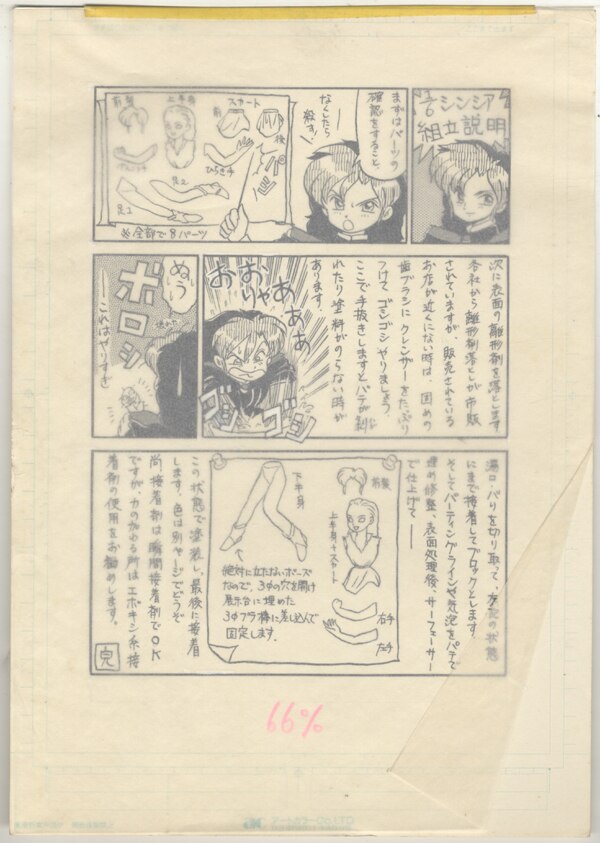 1/6 シンシア
組立説明
まずはパーツの
確認をすること
なくしたら
殺す!
前髪
上半身
スカート
前
後
ひらき手
足1
足2
※全部で8パーツ
次に表面の離形剤を落とします
各社から離形剤落としが市販
されていますが、販売されている
お店が近くにない時は、固めの
歯ブラシにクレンザーをたっぷり
つけて、ゴシゴシやりましょう。
ここで手抜きしますとパテが剥
れたり塗料がのらない時が
あります。
おおりゃあぁぁぁ
ゴシゴシ
ぬぅ
ボロッ
――これはやりすぎ
湯口・バリを切り取って、左記の状態
にまで接着してブロックとします。
そしてパーティングラインや気泡をパテで
埋め修整、表面処理後、サーフェーサー
で仕上げて――
前髪
上半身+スカート
右手
左手
下半身
絶対に立たないポーズ
なので、3φの穴を開け
展示台に埋めた
3φプラ棒に差し込んで
固定します。
この状態で塗装し、最後に接着
します。色は別ページでどうぞ
尚接着剤は瞬間接着剤でOK
ですが、力のかかる所はエポキシ系接
着剤の使用をお勧めします。
完
66%